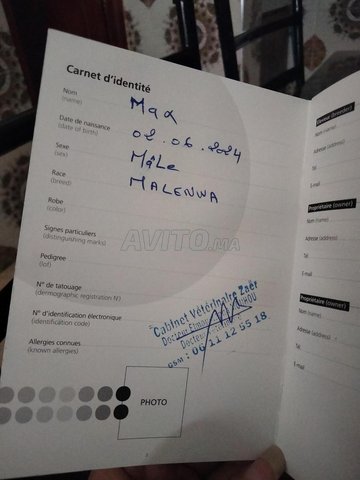 Carnet d'identité
Nom
(name)
Max
Date de naissance
(date of birth)
02.06.2024
Sexe
(sex)
Mâle
Race
(breed)
MALENWA
Robe
(color)
Signes particuliers
(distinguishing marks)
AVITO.MA
Pedigree
(lot)
N° de tatouage
(dermographic registration N°)
N° d'identification électronique
(identification code)
Allergies connues
(known allergies)
Cabinet Vétérinaire Zaër
Docteur
Docteur
GSM : 06 11 12 55 18
PHOTO
2
Eleveur (breeder)
Nom (name)
Adresse (address)
Tel.
E-mail
Propriétaire (owner)
Nom (name)
Adresse (address)
Tel.
E-mail
Propriétaire (owner)
Nom (name)
Adresse (address)
Tel.
E-mail